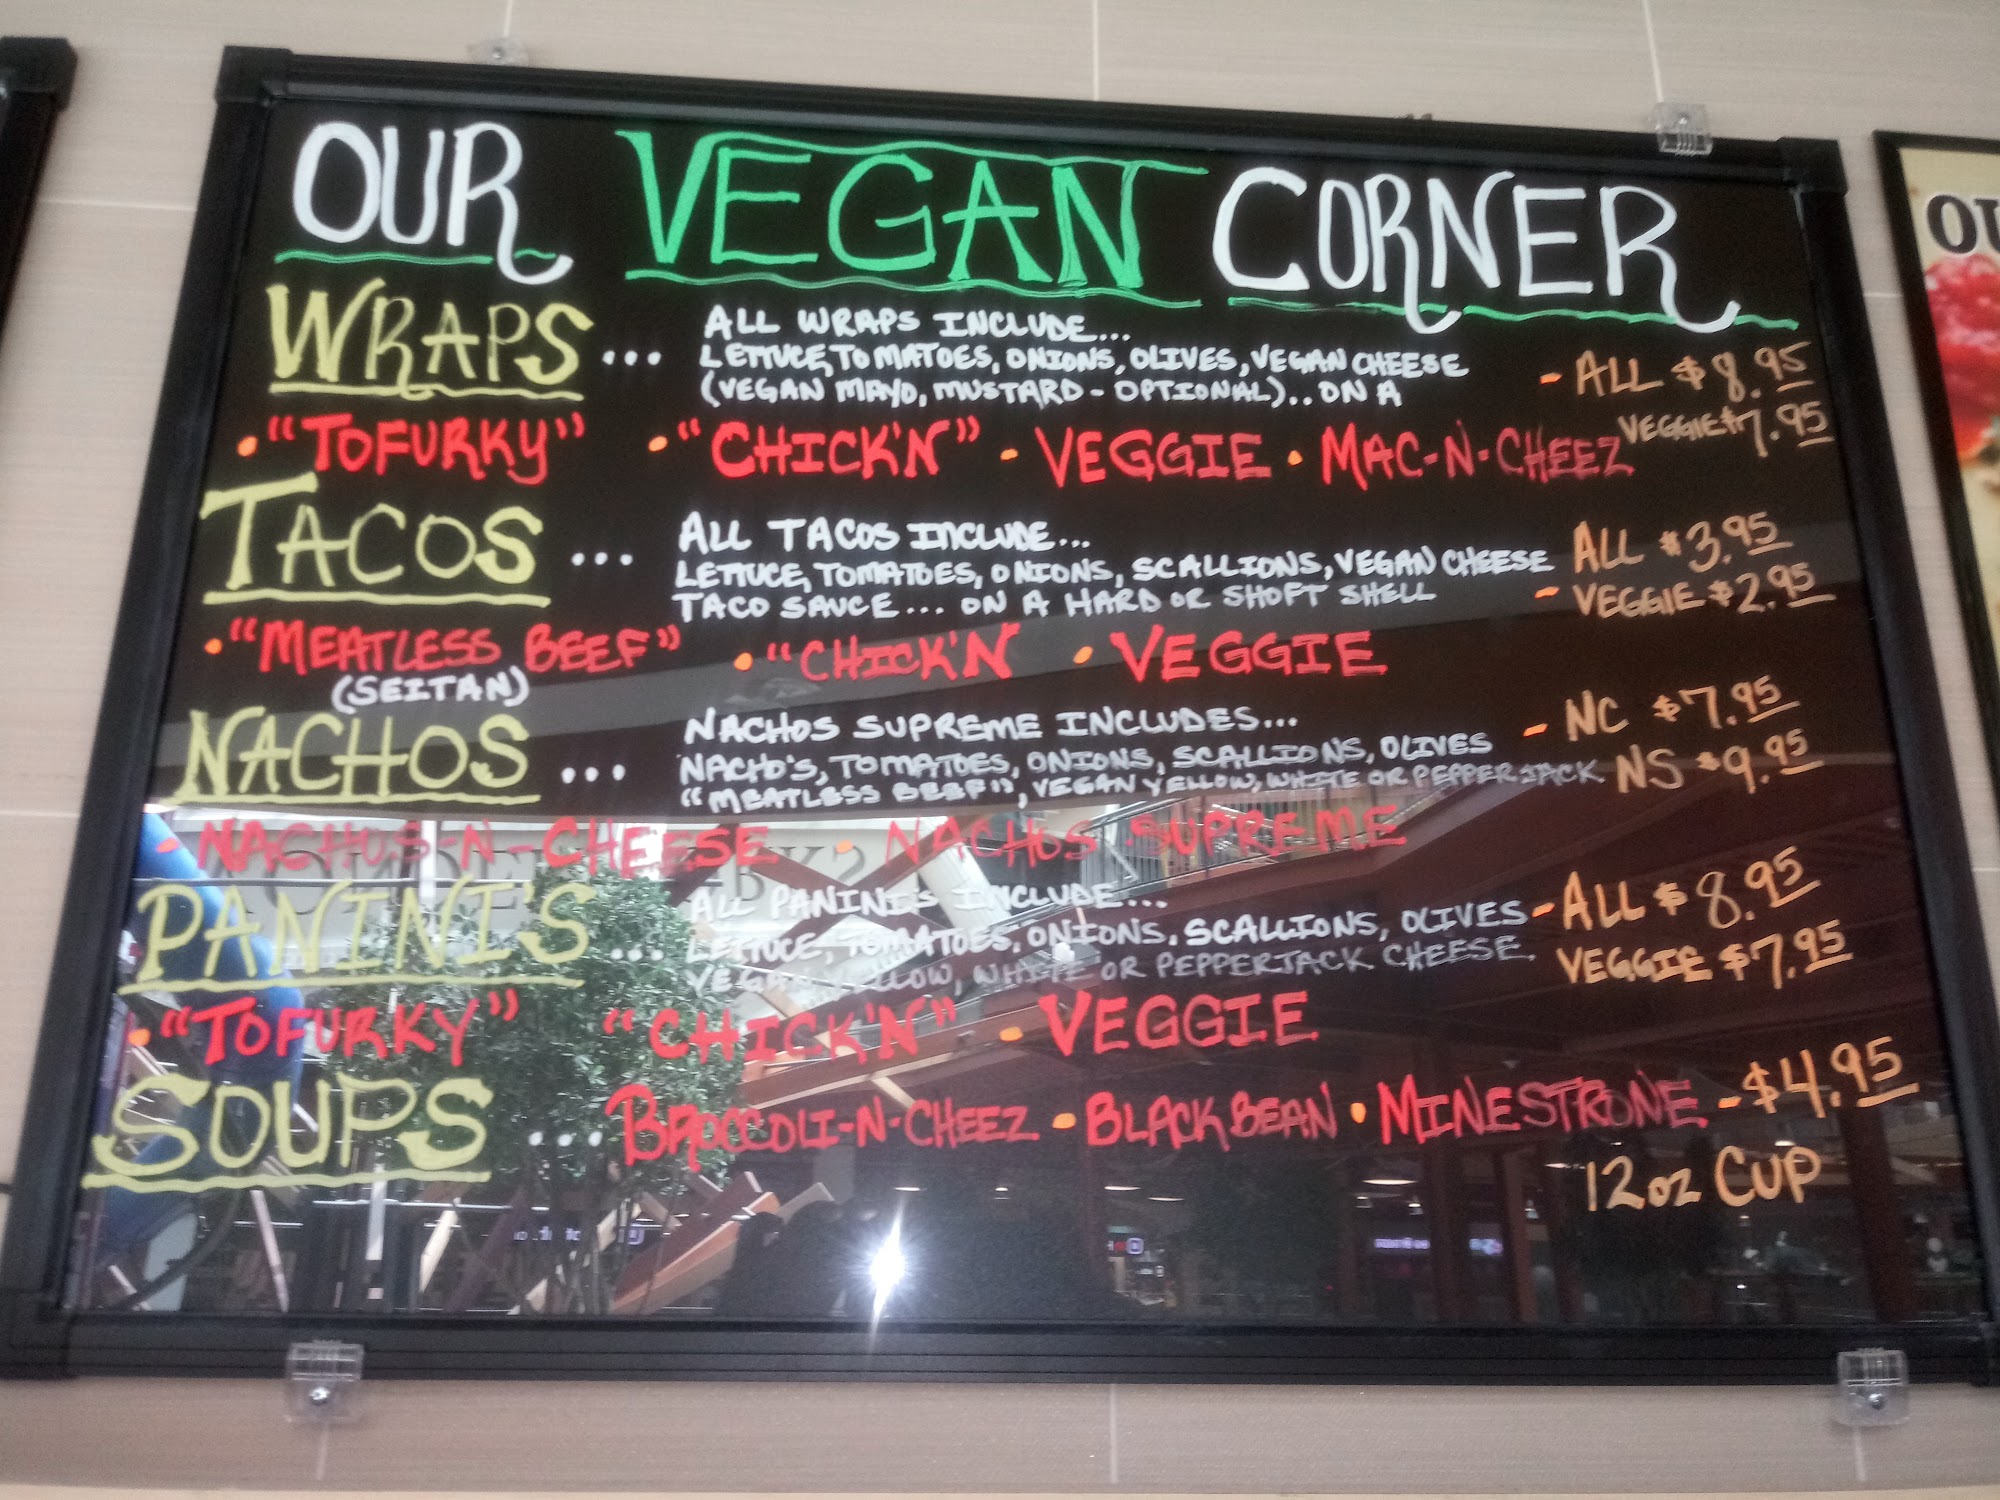 OUR VEGAN CORNER
WRAPS ... ALL WRAPS INCLUDE...
LETTUCE, TOMATOES, ONIONS, OLIVES, VEGAN CHEESE - ALL $8.95
(VEGAN MAYO, MUSTARD - OPTIONAL).. ON A
• "TOFURKY" • "CHICK'N" - VEGGIE • MAC-N-CHEEZ VEGGIE $7.95
TACOS ... ALL TACOS INCLUDE...
LETTUCE, TOMATOES, ONIONS, SCALLIONS, VEGAN CHEESE ALL $3.95
TACO SAUCE... ON A HARD OR SHOFT SHELL - VEGGIE $2.95
• "MEATLESS BEEF" • "CHICK'N • VEGGIE
(SEITAN)
NACHOS ... NACHOS SUPREME INCLUDES... - NC $7.95
NACHO'S, TOMATOES, ONIONS, SCALLIONS, OLIVES
"MEATLESS BEEF", VEGAN YELLOW, WHITE OR PEPPERJACK NS $9.95
- NACHOS-N-CHEESE • NACHOS SUPREME
PANINI'S ... ALL PANINI'S INCLUDE...
LETTUCE, TOMATOES, ONIONS, SCALLIONS, OLIVES - ALL $8.95
VEGAN YELLOW, WHITE OR PEPPERJACK CHEESE. VEGGIE $7.95
• "TOFURKY" "CHICK'N" - VEGGIE
SOUPS ... BROCCOLI-N-CHEEZ • BLACK BEAN • MINESTRONE - $4.95
12oz CUP